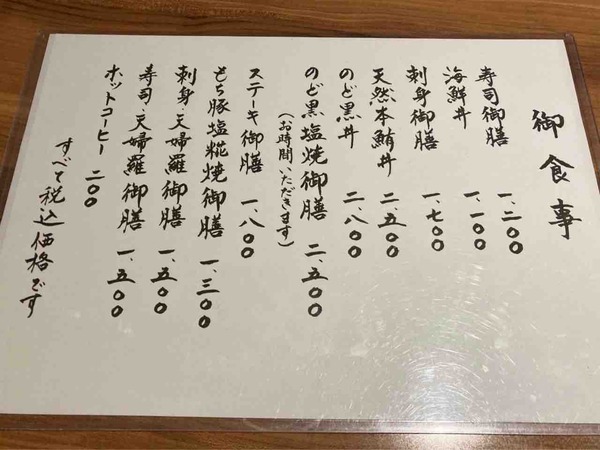 御食事
寿司御膳 一、二〇〇
海鮮丼 一、一〇〇
刺身御膳 一、七〇〇
天然本鮪丼 二、五〇〇
のど黒丼 二、八〇〇
のど黒塩焼御膳 二、五〇〇
(お時間いただきます)
ステーキ御膳 一、八〇〇
もち豚塩糀焼御膳 一、三〇〇
刺身・天婦羅御膳 一、五〇〇
寿司・天婦羅御膳 一、五〇〇
ホットコーヒー 二〇〇
すべて税込価格です